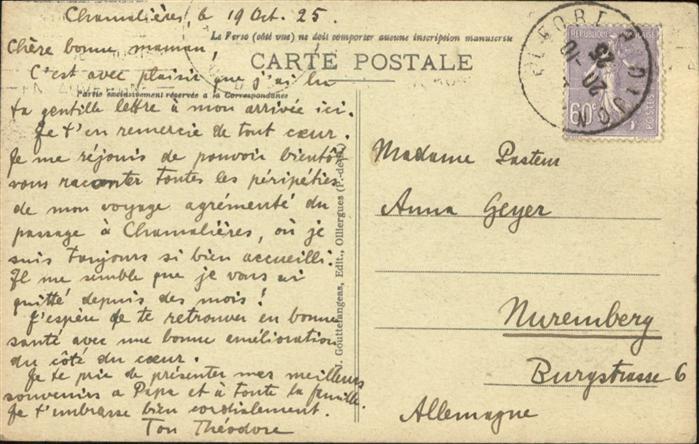 Chamalières, le 19 Oct. 25.
Le Verso (côté vue) ne doit comporter aucune inscription manuscrite
CARTE POSTALE
Partie exclusivement réservée à la Correspondance
Chère bonne maman,
C'est avec plaisir que j'ai lu
ta gentille lettre à mon arrivée ici.
Je t'en remercie de tout cœur.
Je me réjouis de pouvoir bientôt
vous raconter toutes les péripéties
de mon voyage agrémenté du
passage à Chamalières, où je
suis toujours si bien accueilli.
Il me semble que je vous ai
quitté depuis des mois!
J'espère de te retrouver en bonne
santé avec une bonne amélioration
du côté du cœur.
Je te prie de présenter mes meilleurs
souvenirs à Papa et à toute la famille.
Je t'embrasse bien cordialement.
Ton Théodore
Gouttefangeas, Edit., Olliergues (P.-de-D.)
RÉPUBLIQUE
60c
DIJON
20 -10
25
Madame Pasteur
Anna Geyer
Nuremberg
Burgstrasse 6
Allemagne